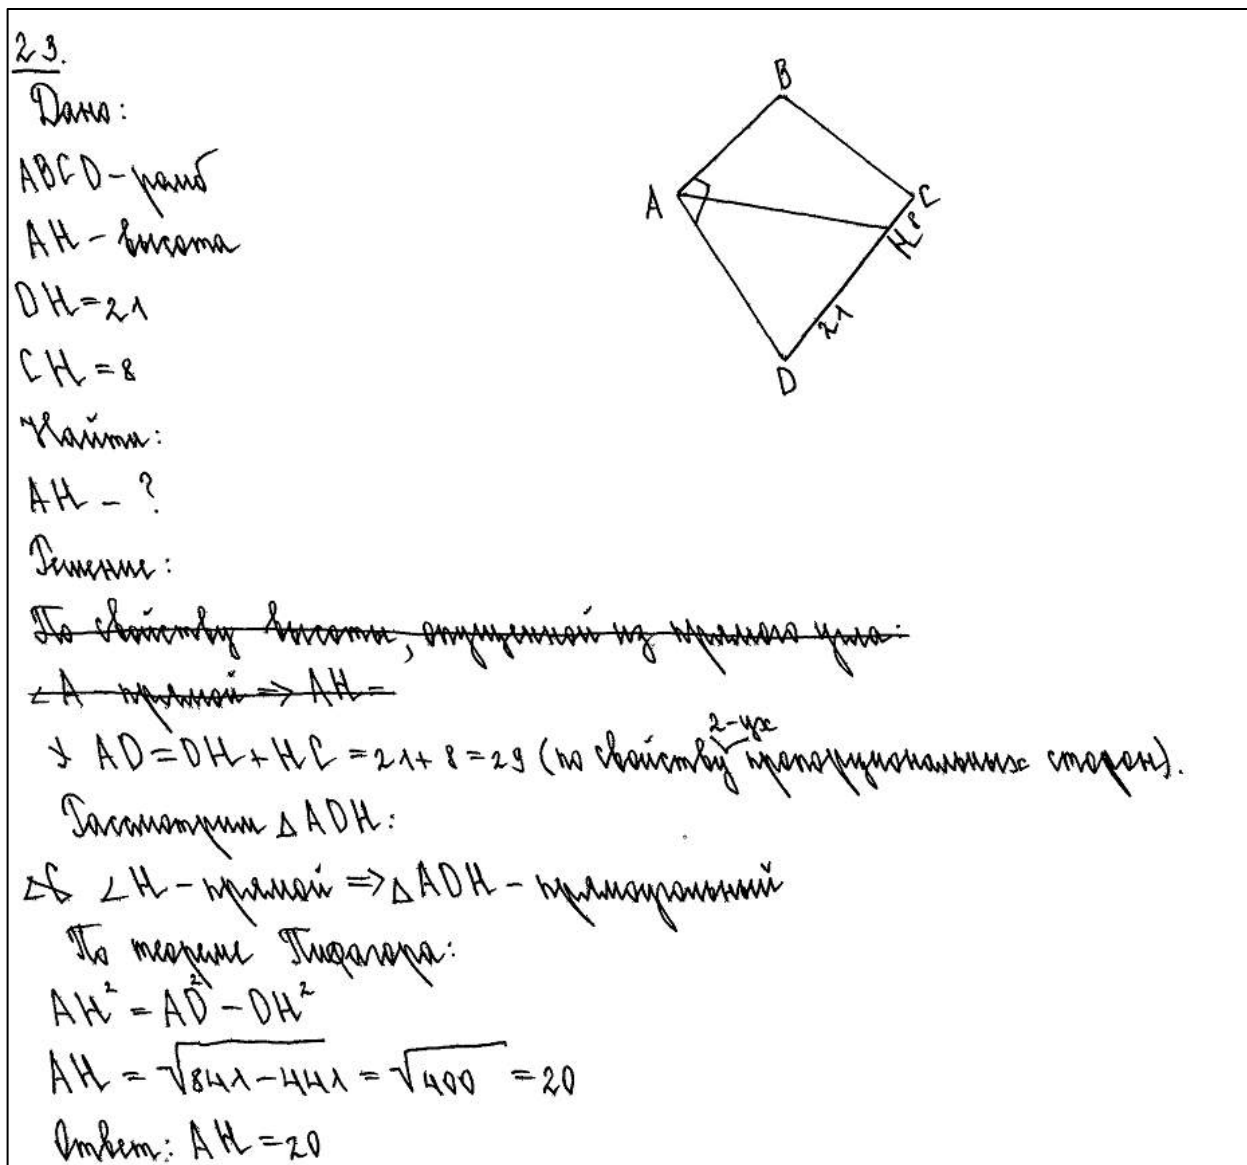 23.
Дано:
ABCD - ромб
AH - высота
DH = 21
CH = 8
Найти:
AH - ?
Решение:
По свойству высоты, опущенной из прямого угла:
∠A - прямой => AH =
AD = DH + HC = 21 + 8 = 29 (по свойству 2-ух пропорциональных сторон).
Рассмотрим △ADH:
∠H - прямой => △ADH - прямоугольный
По теореме Пифагора:
AH² = AD² - DH²
AH = √841-441 = √400 = 20
Ответ: AH = 20
B
A
C
8
H
21
D